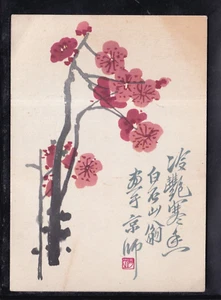 冷艷寒香
白石山翁
画于京師